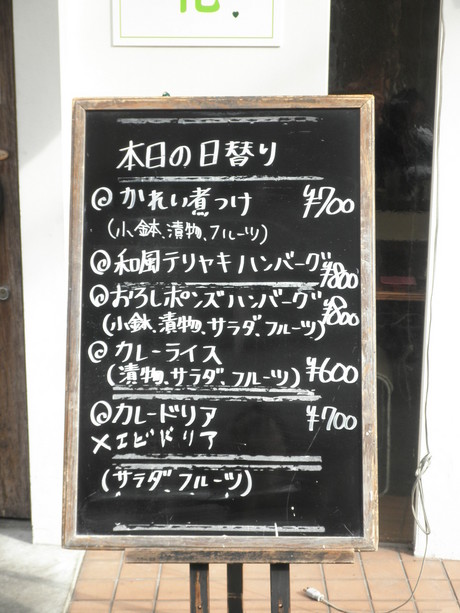 本日の日替り
◎かれい煮つけ ¥700
(小鉢、漬物、フルーツ)
◎和風テリヤキハンバーグ ¥800
◎おろしポンズハンバーグ ¥800
(小鉢、漬物、サラダ、フルーツ)
◎カレーライス
(漬物、サラダ、フルーツ) ¥600
◎カレードリア ¥700
×エビドリア
(サラダ、フルーツ)